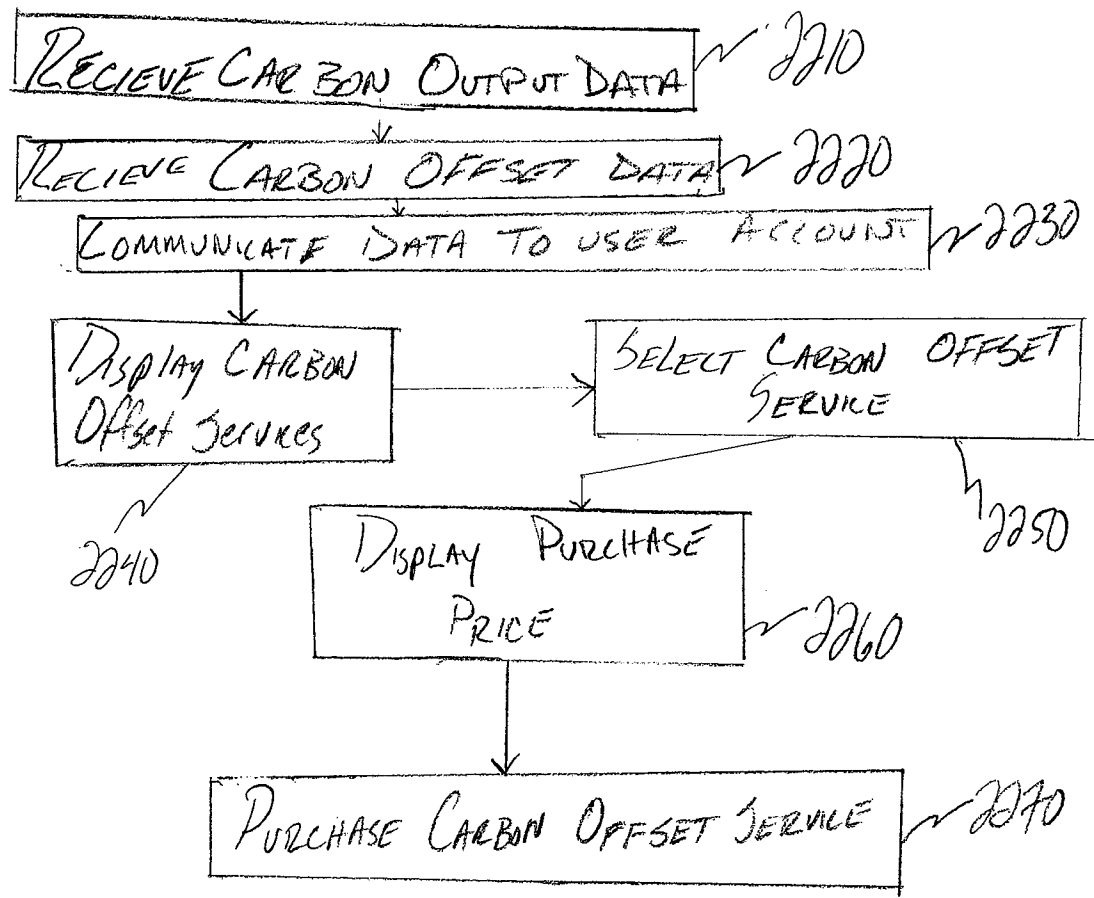 RECIEVE CARBON OUTPUT DATA 2210
RECIEVE CARBON OFFSET DATA 2220
COMMUNICATE DATA TO USER ACCOUNT 2230
Display CARBON
Offset Services
2240
SELECT CARBON OFFSET
SERVICE
2250
DISPLAY PURCHASE
PRICE
2260
PURCHASE CARBON OFFSET SERVICE 2270